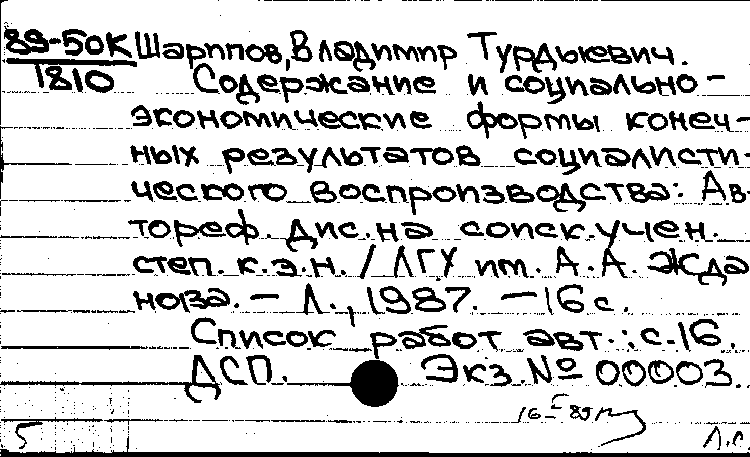 89-50К Шарипов, Владимир Турдыевич.
1810 Содержание и социально-
экономические формы конеч-
ных результатов социалисти-
ческого воспроизводства: Ав-
тореф. дис. на соиск. учен.
степ. к.э.н. / ЛГУ им. А.А. Жда
нова. – Л., 1987. – 16 с.
Список работ авт.: с. 16.
ДСП. Экз. № 00003.
16 89
5 Л.С